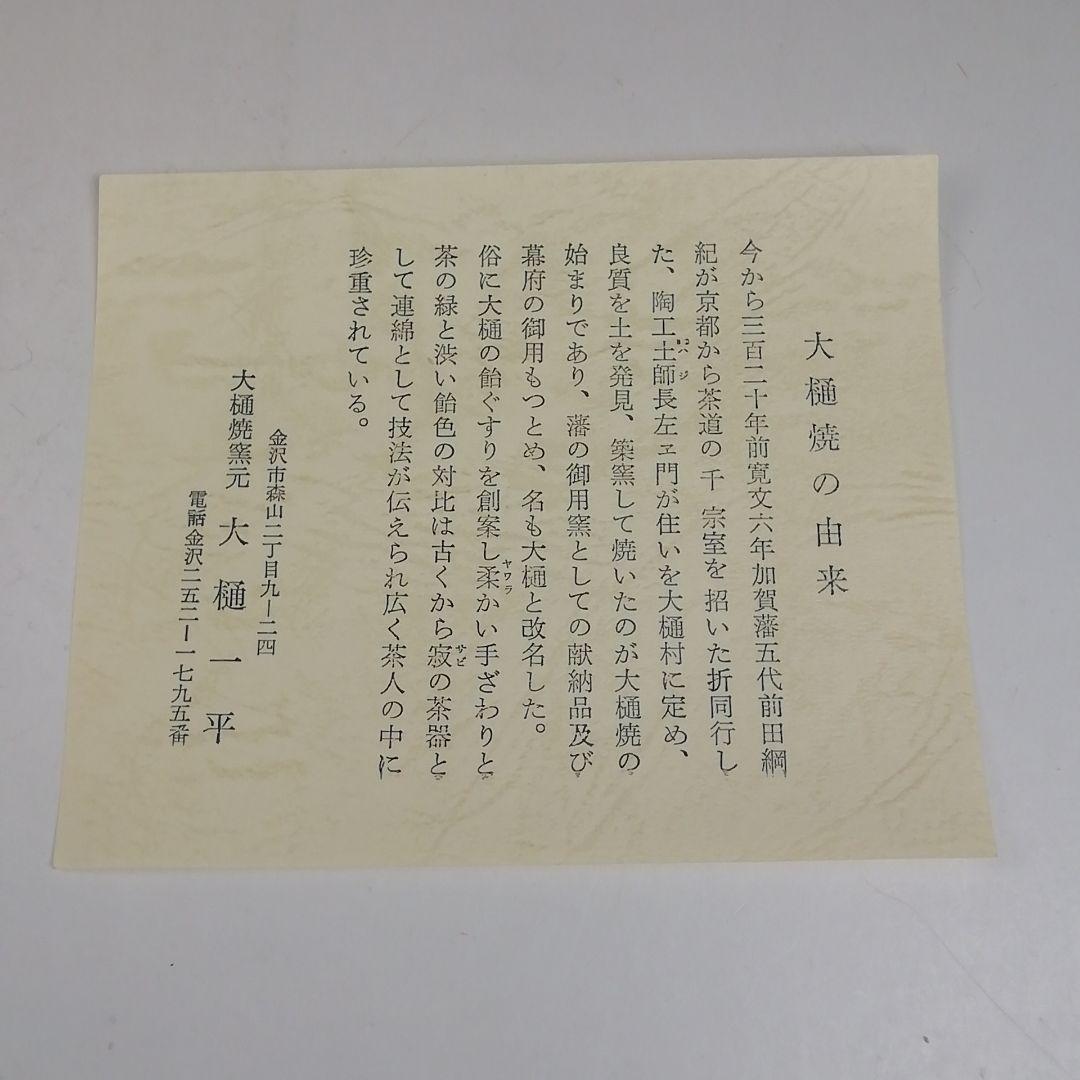 大樋焼の由来
今から三百二十年前寛文六年加賀藩五代前田綱
紀が京都から茶道の千 宗室を招いた折同行し
た、陶工土師長左ヱ門が住いを大樋村に定め、
良質を土を発見、築窯して焼いたのが大樋焼の
始まりであり、藩の御用窯としての献納品及び
幕府の御用もつとめ、名も大樋と改名した。
俗に大樋の飴ぐすりを創案し柔かい手ざわりと
茶の緑と渋い飴色の対比は古くから寂の茶器と
して連綿として技法が伝えられ広く茶人の中に
珍重されている。
金沢市森山二丁目九ー二四
大樋焼窯元 大樋一平
電話金沢二五二ー一七九五番